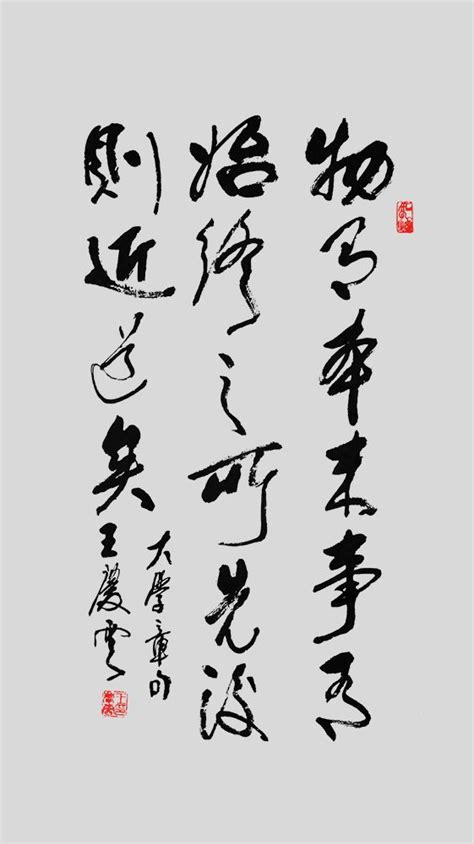 物有本末事有
始終之所先後
則近道矣
大學章句
王慶雲